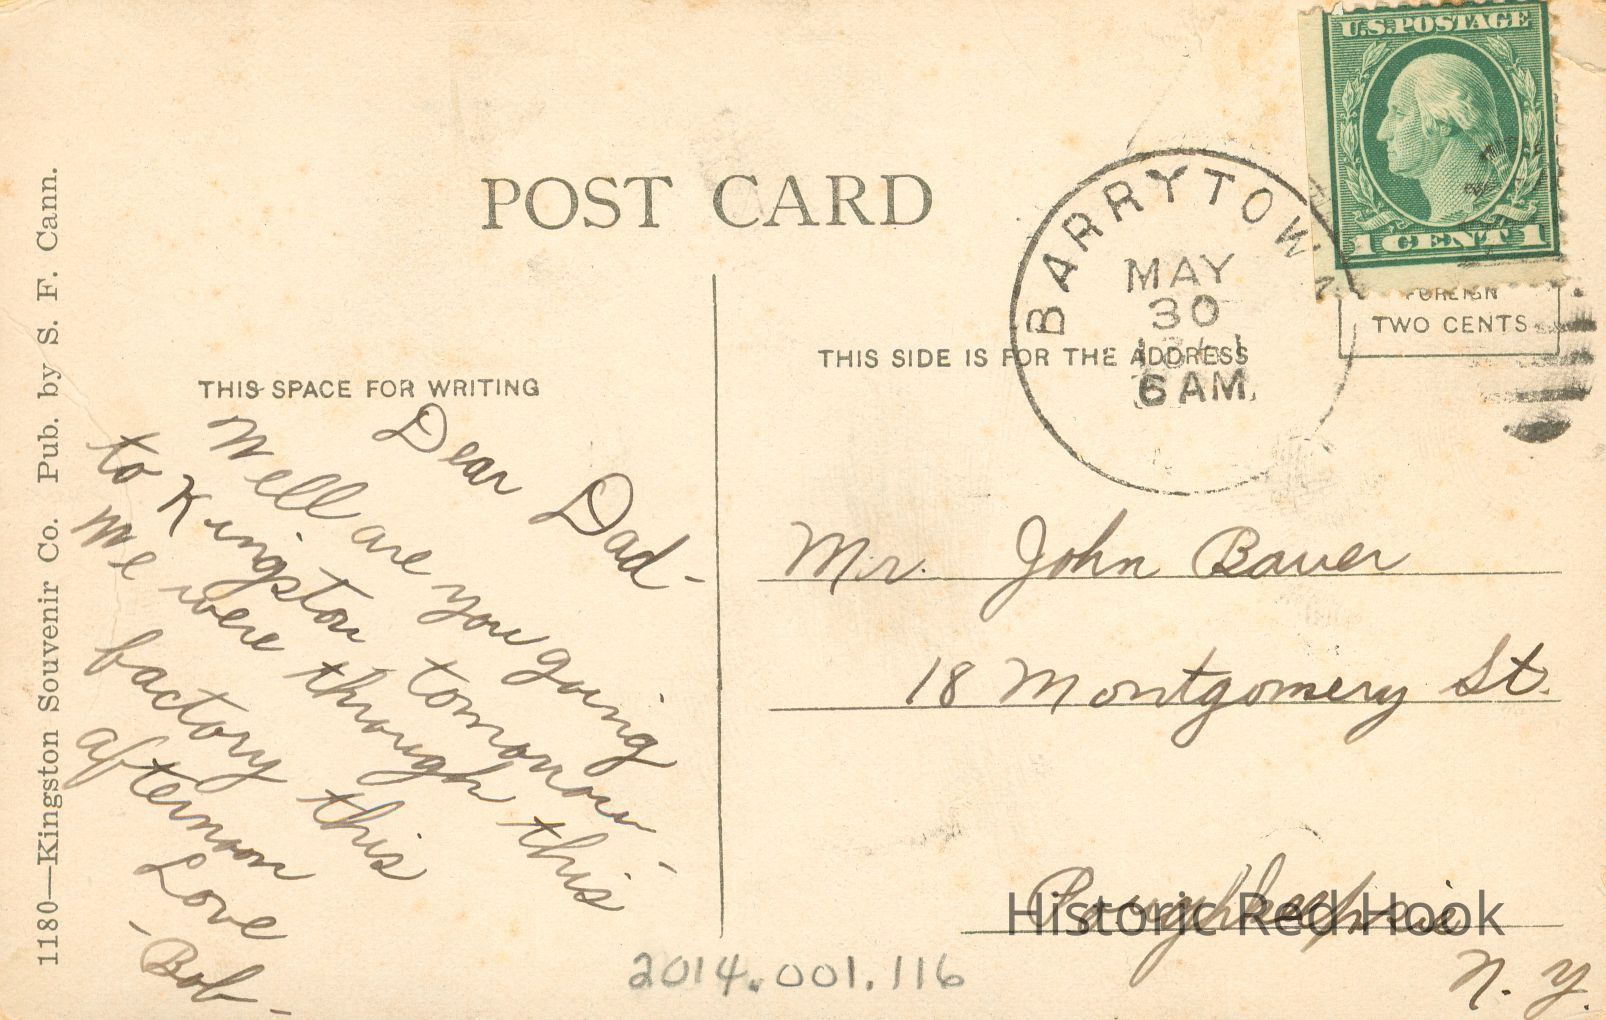 U.S.POSTAGE
1 CENT 1
POST CARD
BARRYTOWN
MAY
30
6 AM.
FOREIGN
TWO CENTS
THIS SIDE IS FOR THE ADDRESS
THIS SPACE FOR WRITING
Dear Dad-
Well are you going
to Kingston tomorrow-
We were through this
factory this
afternoon
Love
-Bob-
Mr. John Bauer
18 Montgomery St.
Poughkeepsie
N. Y.
Historic Red Hook
2014.001.116
1180—Kingston Souvenir Co. Pub. by S. F. Cann.